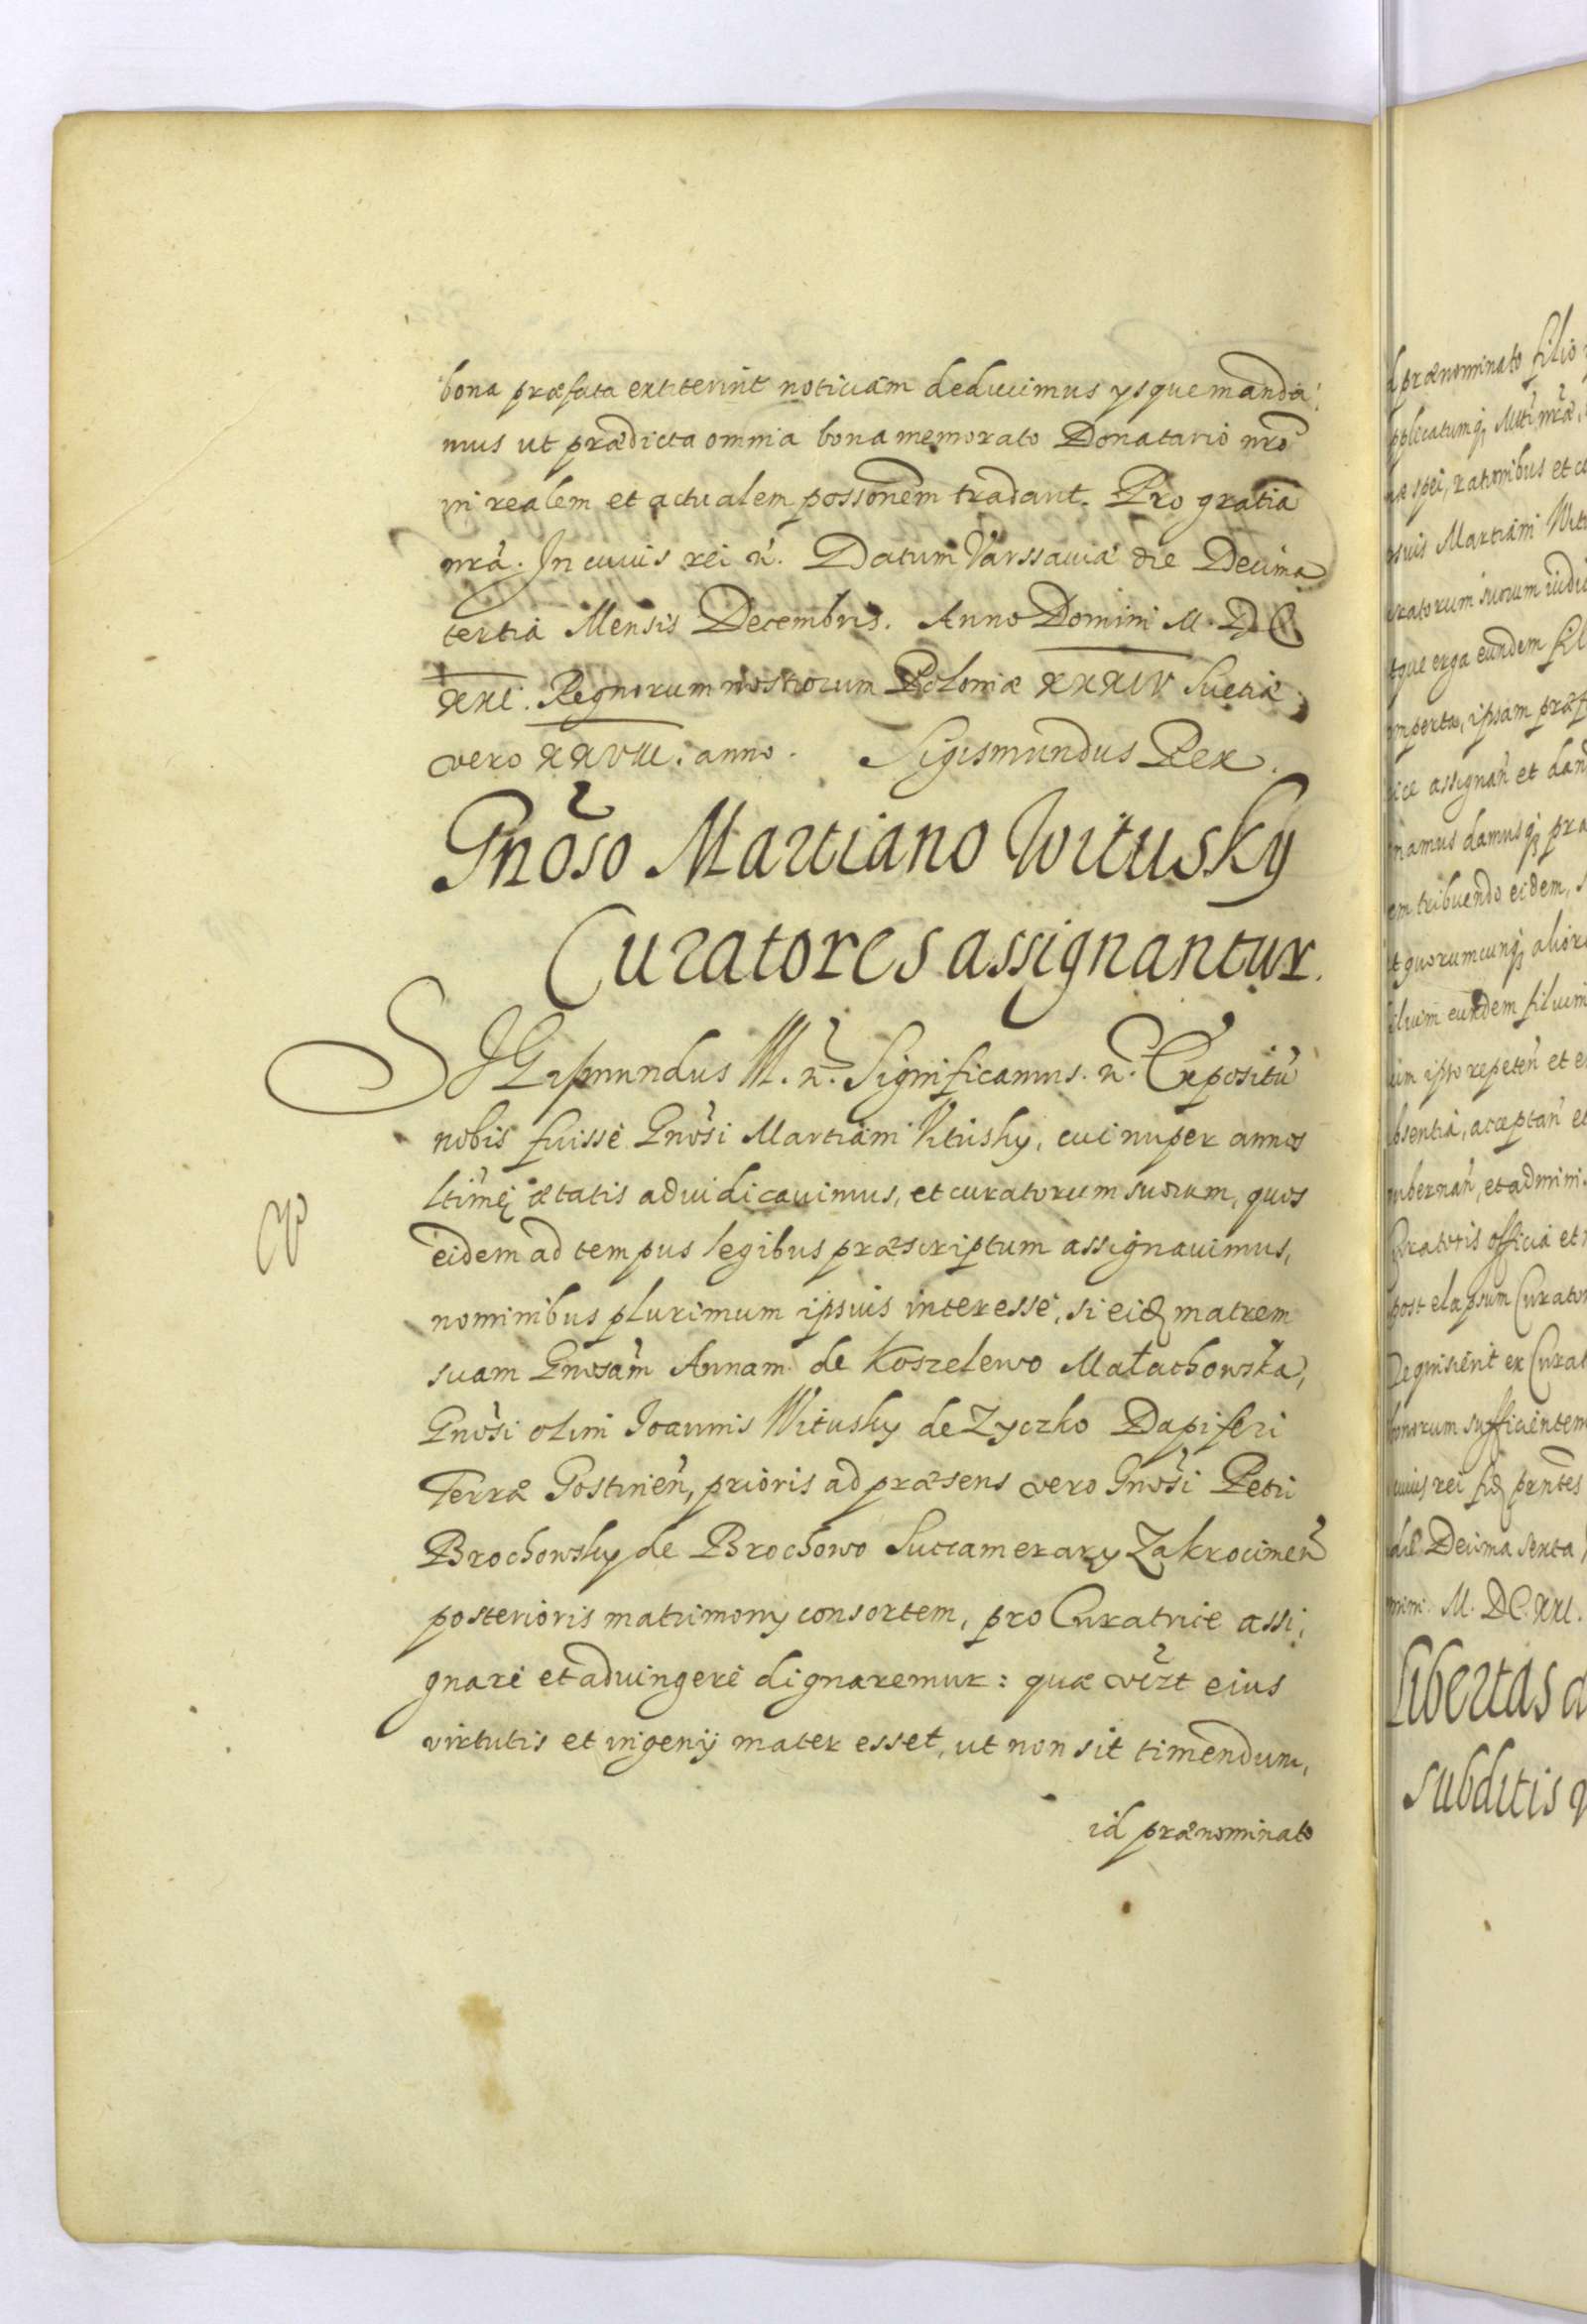 bona præfata extiterint notitiam deducimus ysque manda
mus ut prædicta omnia bona memorato Donatario nr̃o
in realem et actualem possonem tradant. Pro gratia
nr̃a. In cuius rei n̄. Datum Varssaviæ die Decima
tertia Mensis Decembris. Anno Domini M. DC
XXI. Regnorum nostrorum Poloniæ XXXIV Suetiæ
vero XXVIII. anno. Sigismundus Rex.
Gnõso Martiano Witusky
Curatores assignantur.
SIGismundus III. n̄. Significamus. n̄. Expositũ
nobis fuisse Gnõsi Martiani Vitusky, cui nuper annos
ltimę ætatis adiudicavimus, et curatorum suorum, quos
eidem ad tempus legibus præscriptum assignavimus,
nominibus plurimum ipsius interesse, si eid matrem
suam Gnosam Annam de Koszelewo Małachowska,
Gnõsi olim Joannis Witusky de Zyczko Dapiferi
Terræ Gostinen̄, prioris ad præsens vero Gnõsi Petri
Brochowsky de Brochowo Succamerary Zakrocimen̄
posterioris matrimony consortem, pro Curatrice assi
gnare et adiungere dignaremur: quæ eius
virtutis et ingenij mater esset, ut non sit timendum,
id prænominato
d prænominato filio
æ spei, rationibus et co
suis Martiani Wit
ratorum suorum iudi
tque erga eundem fil
mperta, ipsam præf
ice assignan̄ et dan̄
namus damusq pra
em tribuendo eidem, s
t quorumcunq alior
ilium eundem filium
um ipso repeten̄ et e
bsentia, acceptan̄ et
ubernan̄, et admini
Curatoris officia et
post elapsum Curator
Requisierit ex Curat
bonorum sufficientem
cuius rei fid præntes
die Decima sexta,
mini M. DC. XXI.
Libertas a
subditis